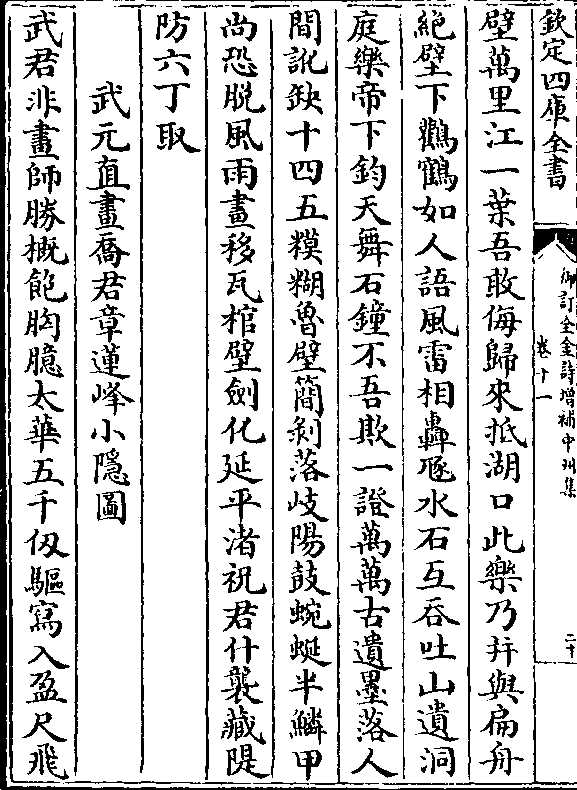 欽定四庫全書
御訂全金詩增補中州集
卷十一
二十
壁萬里江一葉吾敢侮歸來抵湖口此樂乃幷與扁舟
絶壁下鸛鶴如人語風雷相轟豗水石互吞吐山遺洞
庭樂帝下鈞天舞石鐘不吾欺一證萬萬古遺墨落人
間訛缺十四五糢糊魯壁簡剝落岐陽鼓蜿蜒半鱗甲
尚恐脫風雨畫移瓦棺壁劍化延平渚祝君什襲藏隄
防六丁取
武元直畫喬君章蓮峰小隱圖
武君非畫師勝概飽胸臆太華五千仭驅寫入盈尺飛